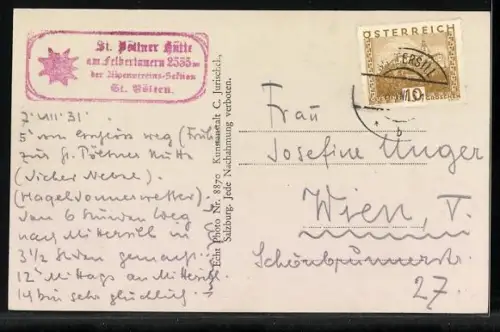 St. Pöltner Hütte
am Felbertauern 2535 m
der Alpenvereins-Sektion
St. Pölten.
7. VIII 31.
5h weg (Früh)
zur St. Pöltner Hütte
(dichter Nebel).
(Hageldonnerwetter).
Vom 6 Stunden Weg
nach Mittersill in
3 1/2 Stunden gemacht.
12h Mittags an Mittersill.
bin sehr glücklich.
Echt Photo Nr. 8870 Kunstanstalt C. Jurischek,
Salzburg. Jede Nachahmung verboten.
ÖSTERREICH
10
Frau
Josefine Unger
Wien, V.
Schönbrunnerstr.
27.